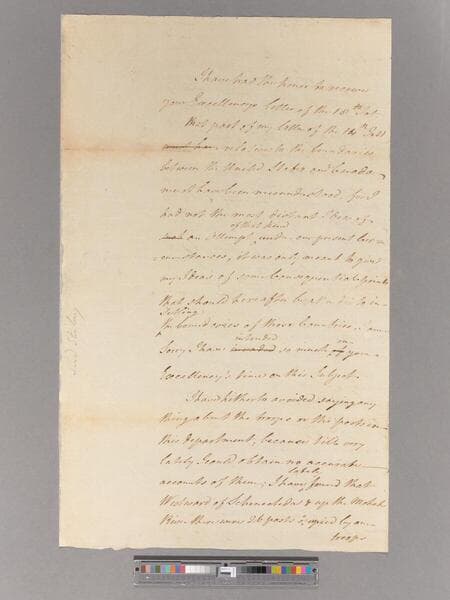 I have had the honor to receive
your Excellencys Letter of the 18th Inst.
That part of my letter of the 14th Inst
relative to the boundaries
between the United States and Canada
must have been misunderstood, for I
had not the most distant Idea of
of that kind
an attempt under our present cir=
=cumstances, it was only meant to give
my Ideas of some consequential points
that should hereafter be
settling
the boundaries of those Countries. am
intended on
sorry I have intruded so much of your
Excellency's time on this Subject.
I have hitherto avoided saying any
thing about the troops or the posts in
this department; because till very
lately I could obtain no accurate
lately
accounts of them; I have found that
Westward of Schenectedy & up the Mohak
River there were 26 posts occupied by our
troops